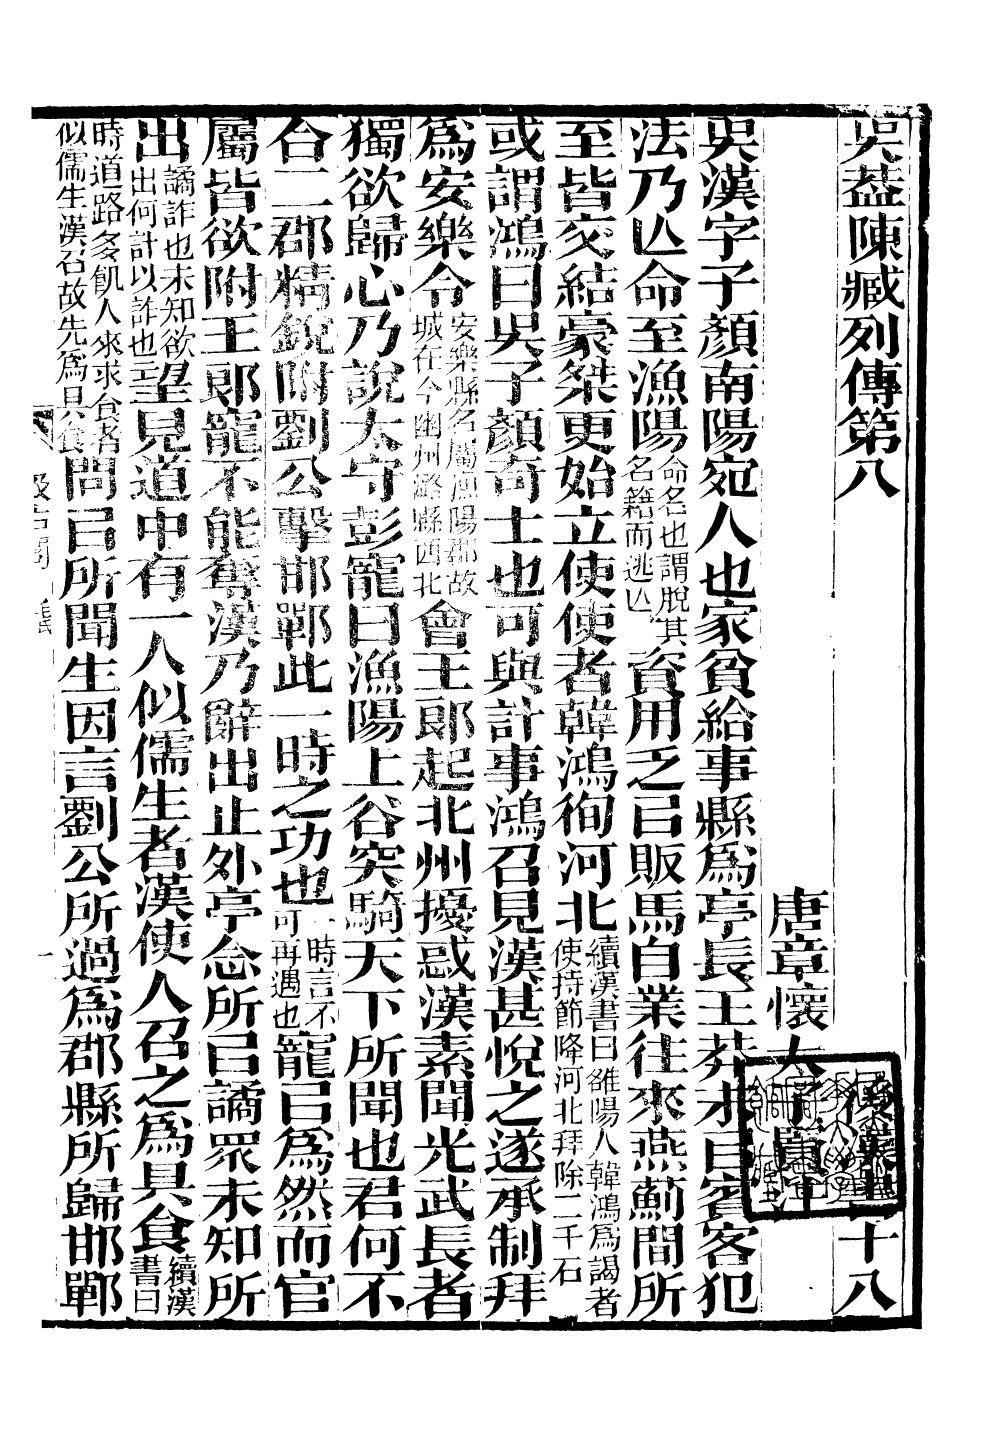 吳葢陳臧列傳第八　後漢書十八
唐章懷太子賢注
吳漢字子顏南陽宛人也家貧給事縣爲亭長王莽末㠯賓客犯
法乃亾命至漁陽命名也謂脫其名籍而逃亾資用乏㠯販馬自業往來燕薊間所
至皆交結豪桀更始立使使者韓鴻徇河北續漢書曰雒陽人韓鴻爲謁者使持節降河北拜除二千石
或謂鴻曰吳子顏奇士也可與計事鴻召見漢甚悅之遂承制拜
爲安樂令安樂縣名屬漁陽郡故城在今幽州潞縣西北會王郎起北州擾惑漢素聞光武長者
獨欲歸心乃說太守彭寵曰漁陽上谷突騎天下所聞也君何不
合二郡精銳附劉公擊邯鄲此一時之功也一時言不可再遇也寵㠯爲然而官
屬皆欲附王郎寵不能奪漢乃辭出止外亭念所㠯譎眾未知所
出譎詐也未知欲出何計以詐也望見道中有一人似儒生者漢使人召之爲具食續漢書曰
時道路多飢人來求食者似儒生漢召故先爲具食問㠯所聞生因言劉公所過爲郡縣所歸邯鄲